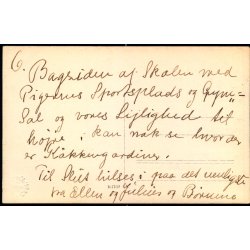 6. Bagsiden af Skolen med
Pigernes Sportsplads og Gym-
Sal og vores Lejlighed til
højre, i kan nok se hvor der
er Køkkengardiner.
Til Slut hilses i paa det venligste
fra Ellen og Julius og Børnene